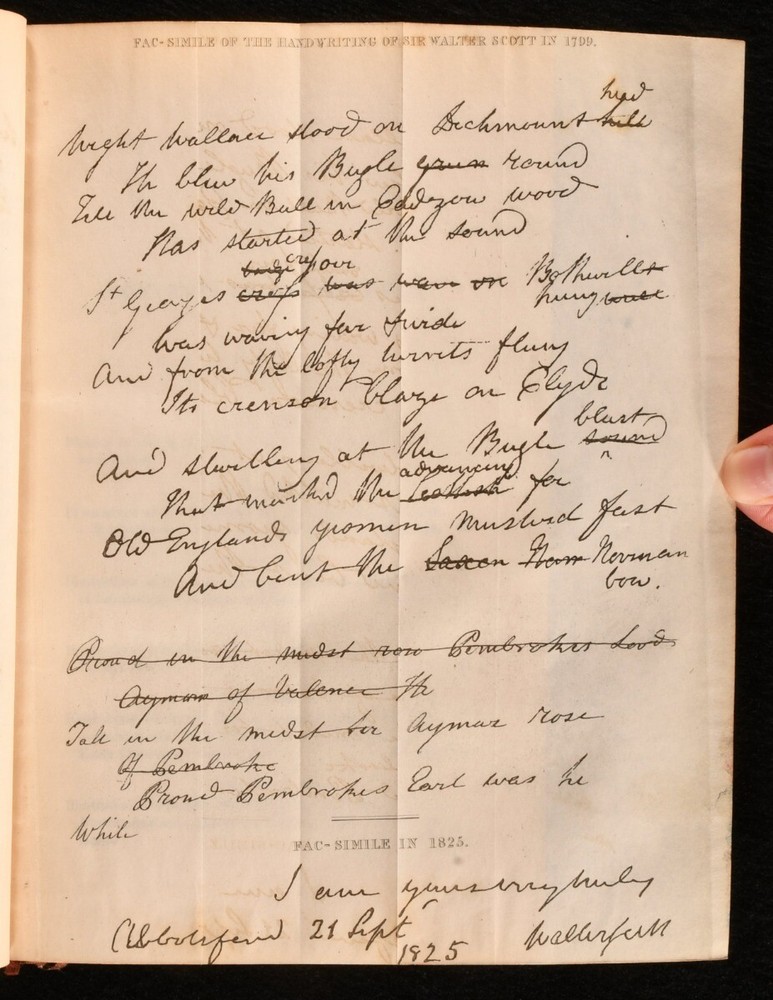 FAC-SIMILE OF THE HANDWRITING OF SIR WALTER SCOTT IN 1799.
head
Wight Wallace stood on Dechmount hill
He blew his Bugle round
Till the wild Bull in Cadzow wood
Has started at the sound
cross over
St Georges cross was wave on Bothwell
hung
Was waving far & wide
And from the lofty turrets flung
Its crimson blaze on Clyde
blast
And swelling at the Bugle sound
advancing
That marked the Scottish foe
Old Englands yeomen musterd fast
And bent the Saxon Norman
bow.
Proud in the midst rose Pembrokes Lord
Aymar of Valence He
Tall in the midst Sir Aymar rose
Of Pembroke
Proud Pembrokes Earl was he
While
FAC-SIMILE IN 1825.
I am yours very truly
Abbotsford 21 Sept Walter Scott
1825